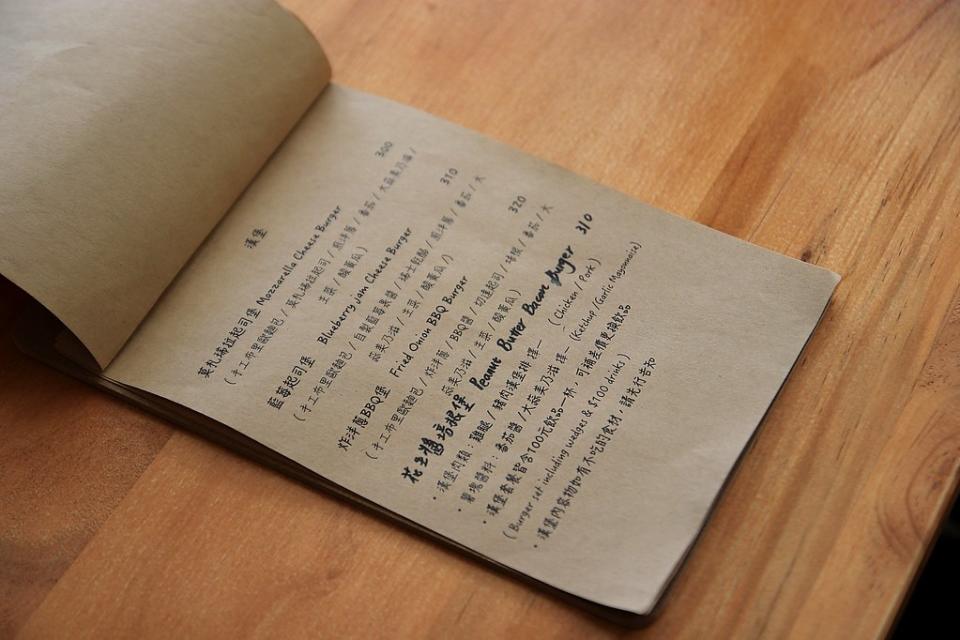 漢堡
莫札瑞拉起司堡 Mozzarella Cheese Burger 300
(手工布里歐麵包/莫札瑞拉起司/煎洋蔥/番茄/大蒜美乃滋/
生菜/酸黃瓜)
藍莓起司堡 Blueberry Jam Cheese Burger 310
(手工布里歐麵包/自製藍莓果醬/瑞士乾酪/煎洋蔥/番茄/大
蒜美乃滋/生菜/酸黃瓜/)
炸洋蔥BBQ堡 Fried Onion BBQ Burger 320
(手工布里歐麵包/炸洋蔥/BBQ醬/切達起司/培根/番茄/大
蒜美乃滋/生菜/酸黃瓜)
花生醬培根堡 Peanut Butter Bacon Burger 310
・漢堡肉類:雞腿/豬肉漢堡排擇一 (Chicken / Pork)
・薯塊醬料:番茄醬/大蒜美乃滋擇一 (Ketchup / Garlic Mayonnaise)
・漢堡套餐皆含100元飲品一杯,可補差價更換飲品
(Burger set including wedges & $100 drinks)
・漢堡內容物如有不吃的食材,請先行告知